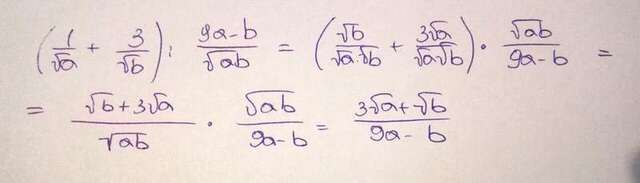 (1/√a + 3/√b) : (9a-b)/√ab = (√b/(√a·√b) + 3√a/(√a√b)) · √ab/(9a-b) =
= (√b+3√a)/√ab · √ab/(9a-b) = (3√a+√b)/(9a-b)